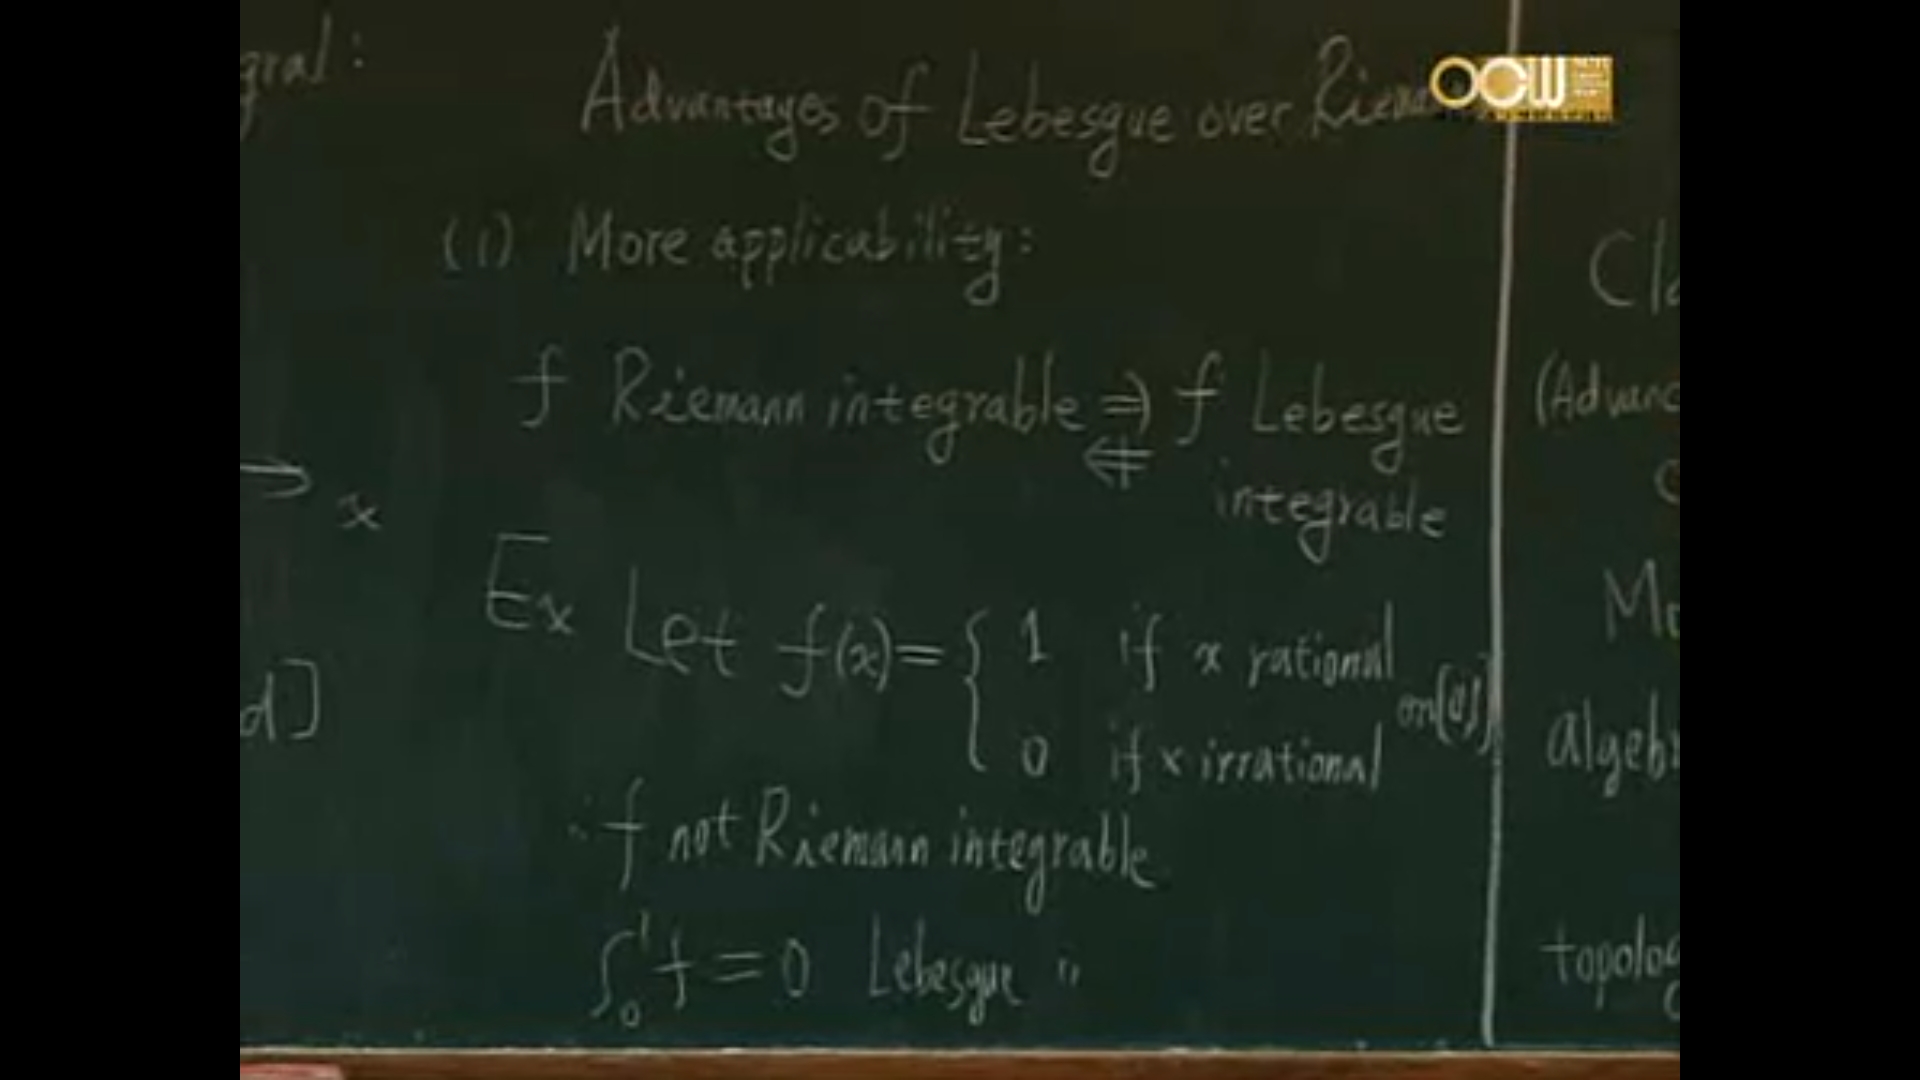 gral:
Advantages of Lebesgue over Riema
OCW
(1) More applicability:
f Riemann integrable ⇒ f Lebesgue
⇍ integrable
x
Ex Let f(x) = { 1 if x rational
0 if x irrational on [0,1]
d]
f not Riemann integrable
∫₀¹ f = 0 Lebesgue "
Cla
(Advanc
Mo
algebr
topolog